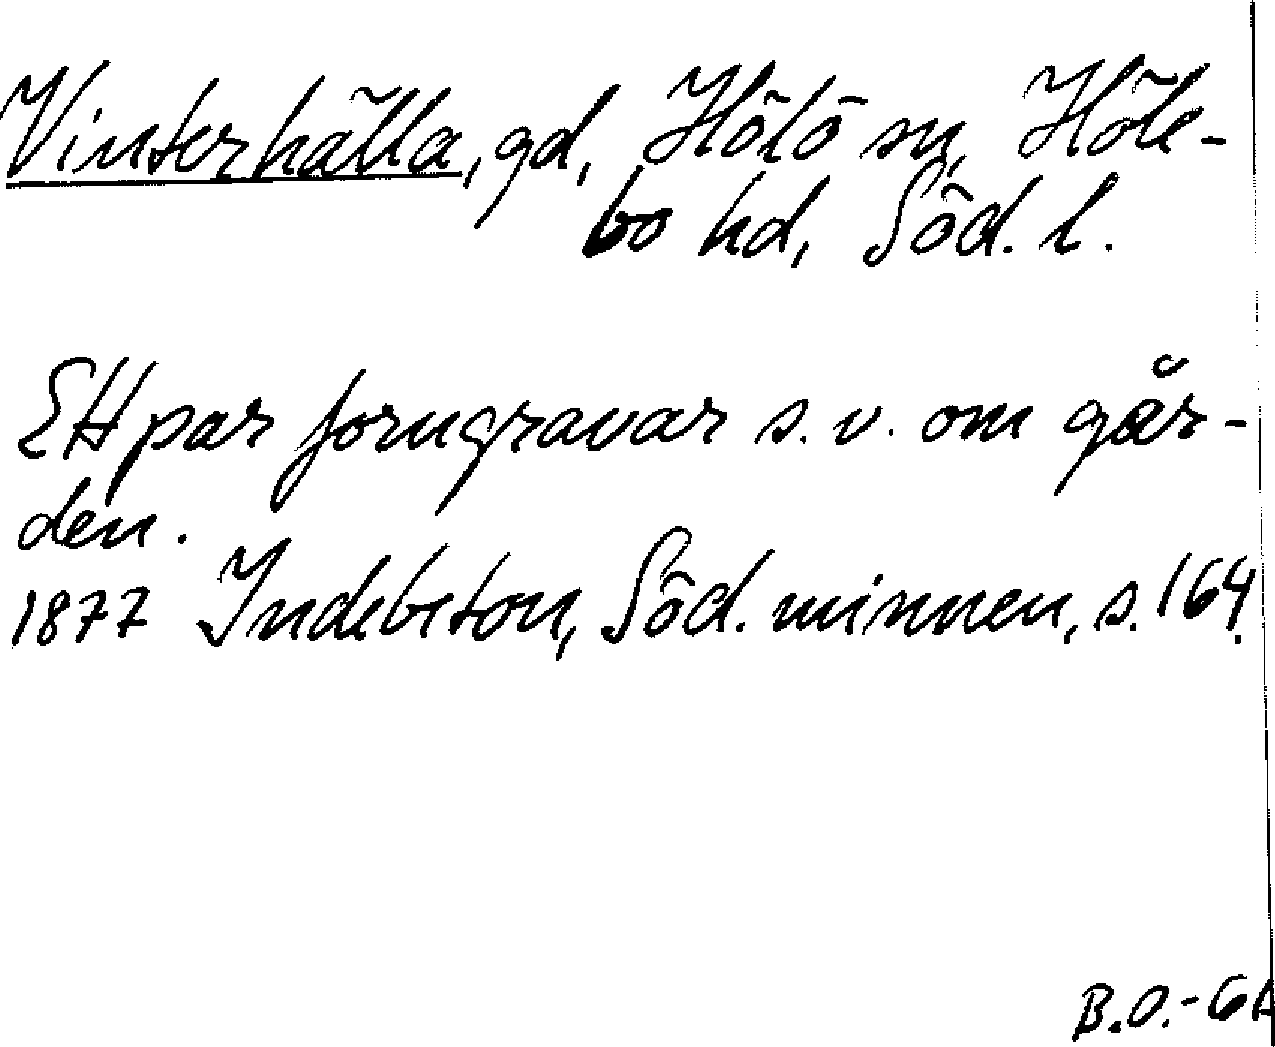 Vinterhälla, gd, Hölö sn, Höle-
bo hd, Söd. l.
Ett par forngravar s.v. om går-
den.
1877 Indebetou, Söd. minnen, s. 164.
B.O.-61